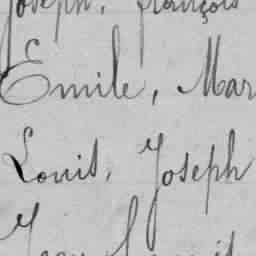 Joseph, françois
Emile, Mar
Louis, Joseph